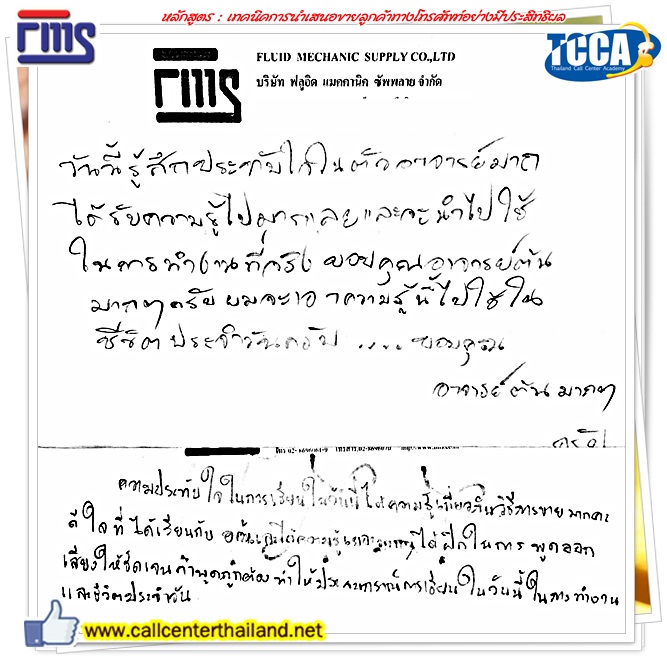 หลักสูตร : เทคนิคการนำเสนอขายลูกค้าทางโทรศัพท์อย่างมีประสิทธิผล
FMS
TCCA
Thailand Call Center Academy
FLUID MECHANIC SUPPLY CO.,LTD
บริษัท ฟลูอิด แมคคานิค ซัพพลาย จำกัด
FMS
วันนี้รู้สึกประทับใจในตัวอาจารย์มาก
ได้รับความรู้ไปมากเลยและจะนำไปใช้
ในการทำงานที่จริง ขอบคุณอาจารย์ต้น
มากๆครับ ผมจะเอาความรู้นี้ไปใช้ใน
ชีวิตประจำวันครับ .... ขอบคุณ
อาจารย์ต้น มากๆ
ครับ
ความประทับใจในการเรียนในวันนี้ ได้ความรู้เกี่ยวกับวิธีการขาย มากค่ะ
ดีใจที่ได้เรียนกับ ได้ฝึกในการ พูดออก
เสียงให้ชัดเจน คำพูดถูกต้อง ทำให้ การเรียนในวันนี้ ในการทำงาน
และชีวิตประจำวัน
www.callcenterthailand.net